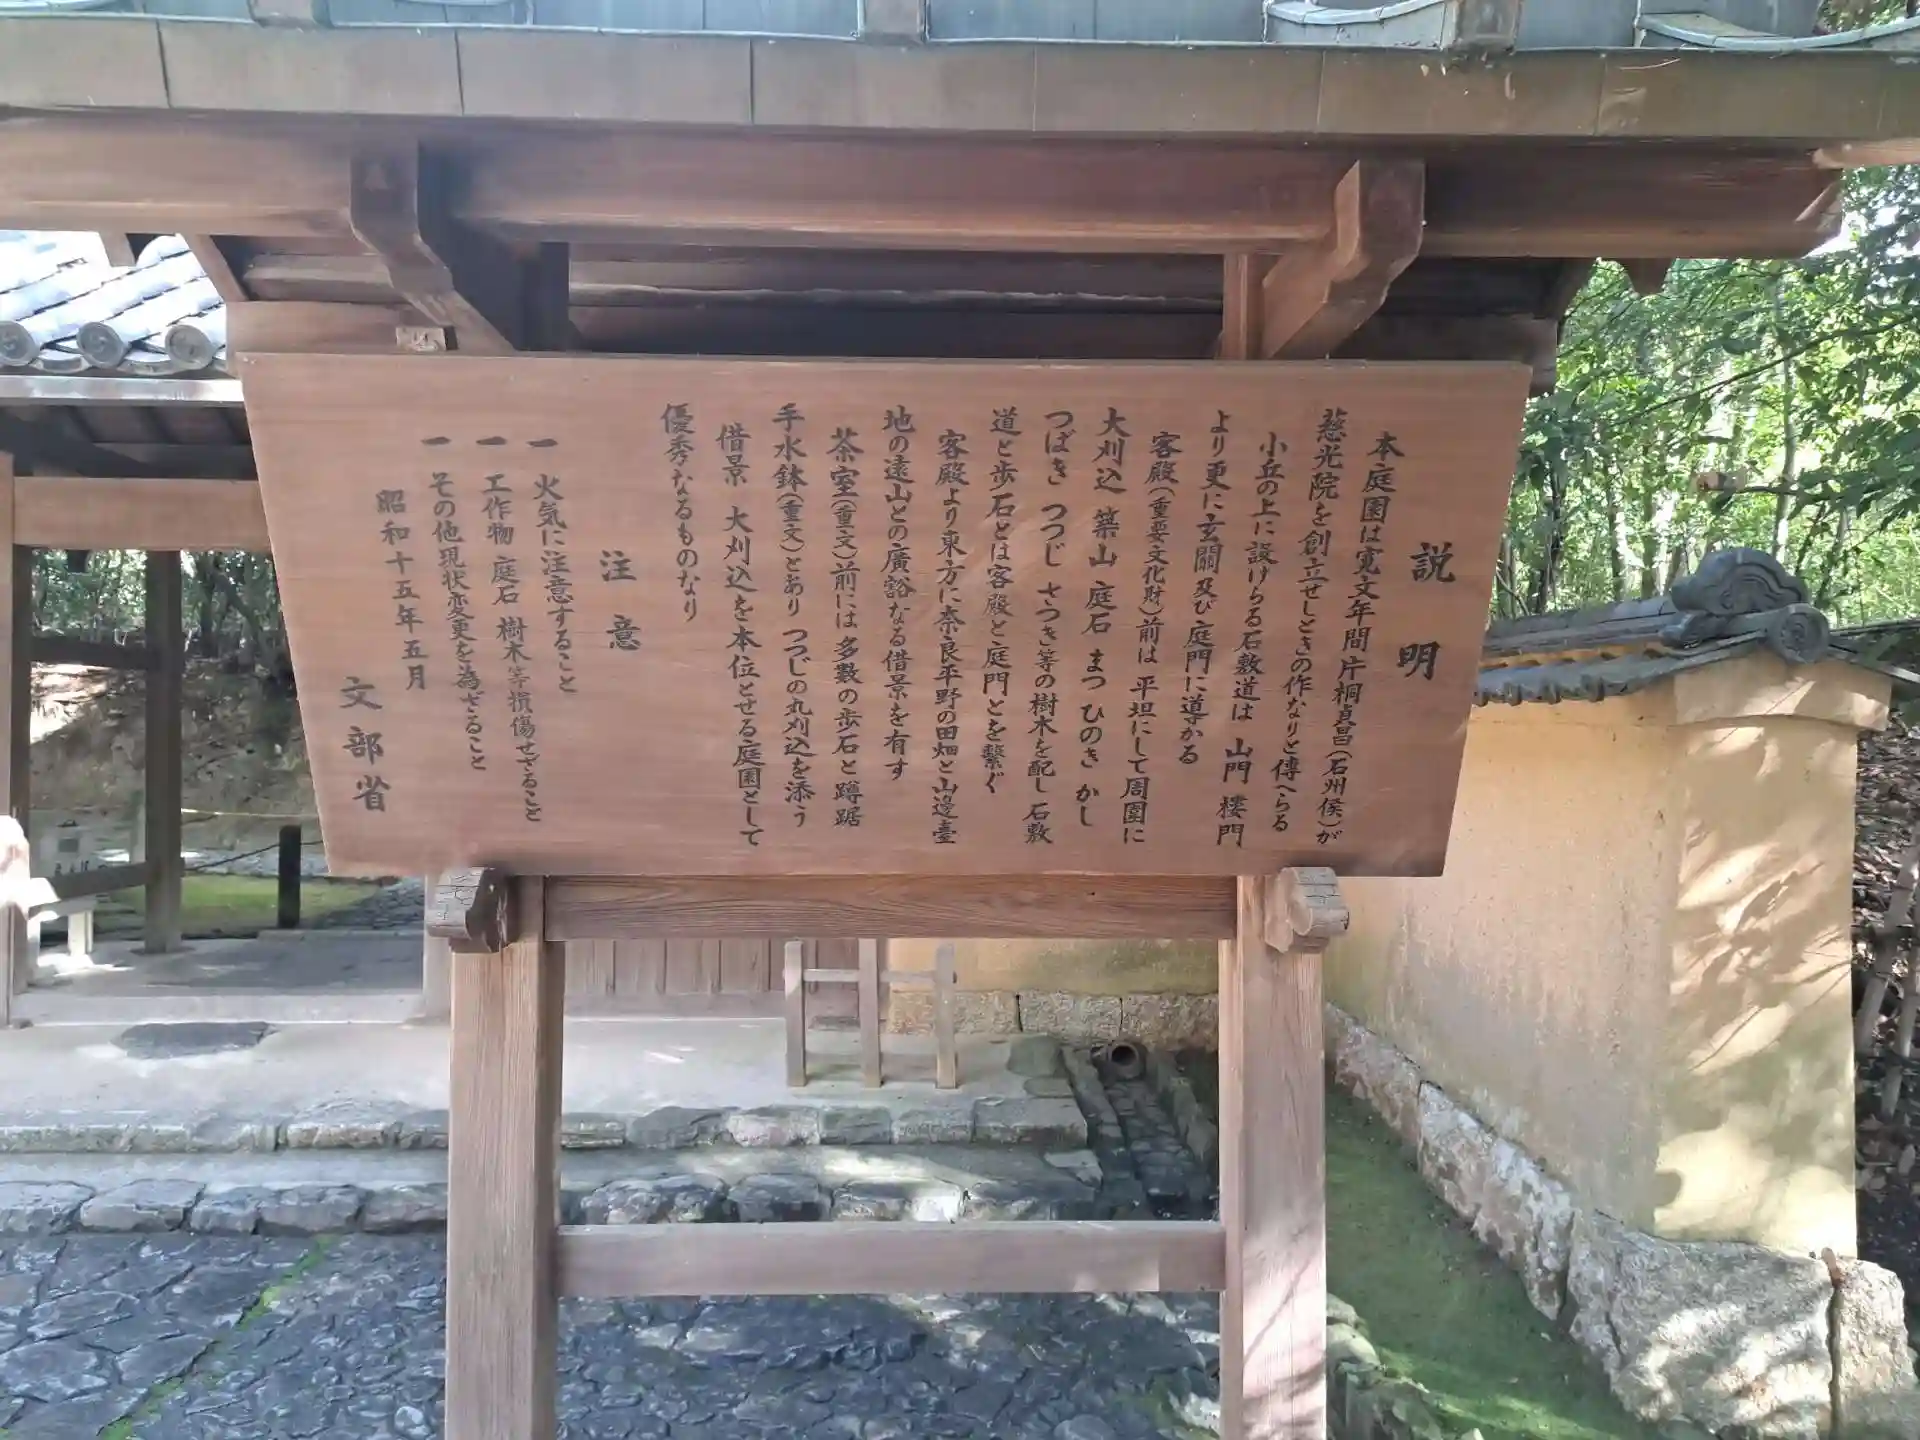 説明
本庭園は寛文年間片桐貞昌（石州侯）が
慈光院を創立せしときの作なりと傳へらる
小丘の上に設けらる石敷道は 山門 樓門
より更に玄關及び庭門に導かる
客殿（重要文化財）前は 平坦にして周圍に
大刈込 築山 庭石 まつ ひのき かし
つばき つつじ さつき等の樹木を配し 石敷
道と歩石とは客殿と庭門とを繫ぐ
客殿より東方に奈良平野の田畑と山邊臺
地の遠山との廣豁なる借景を有す
茶室（重文）前には 多数の歩石と 蹲踞
手水鉢（重文）とあり つつじの丸刈込を添う
借景 大刈込を本位とせる庭園として
優秀なるものなり
注意
一 火気に注意すること
一 工作物 庭石 樹木等損傷せざること
一 その他現状変更を為ざること
昭和十五年五月
文部省